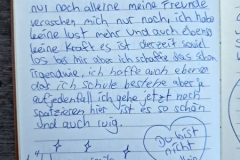 nur noch alleine meine Freunde
verarschen mich nur noch, ich habe
keine lust mehr und auch ebens
keine Kraft es ist derzeit soviel
los bei mir aber ich schaffe das schon
irgendwie, ich hoffe auch ebens
dat ich schule bestehe aber ja
aufjedenfall ich gehe jetzt noch
spatzieren hier ist es so schön
und auch ruig.
Du bist
nicht